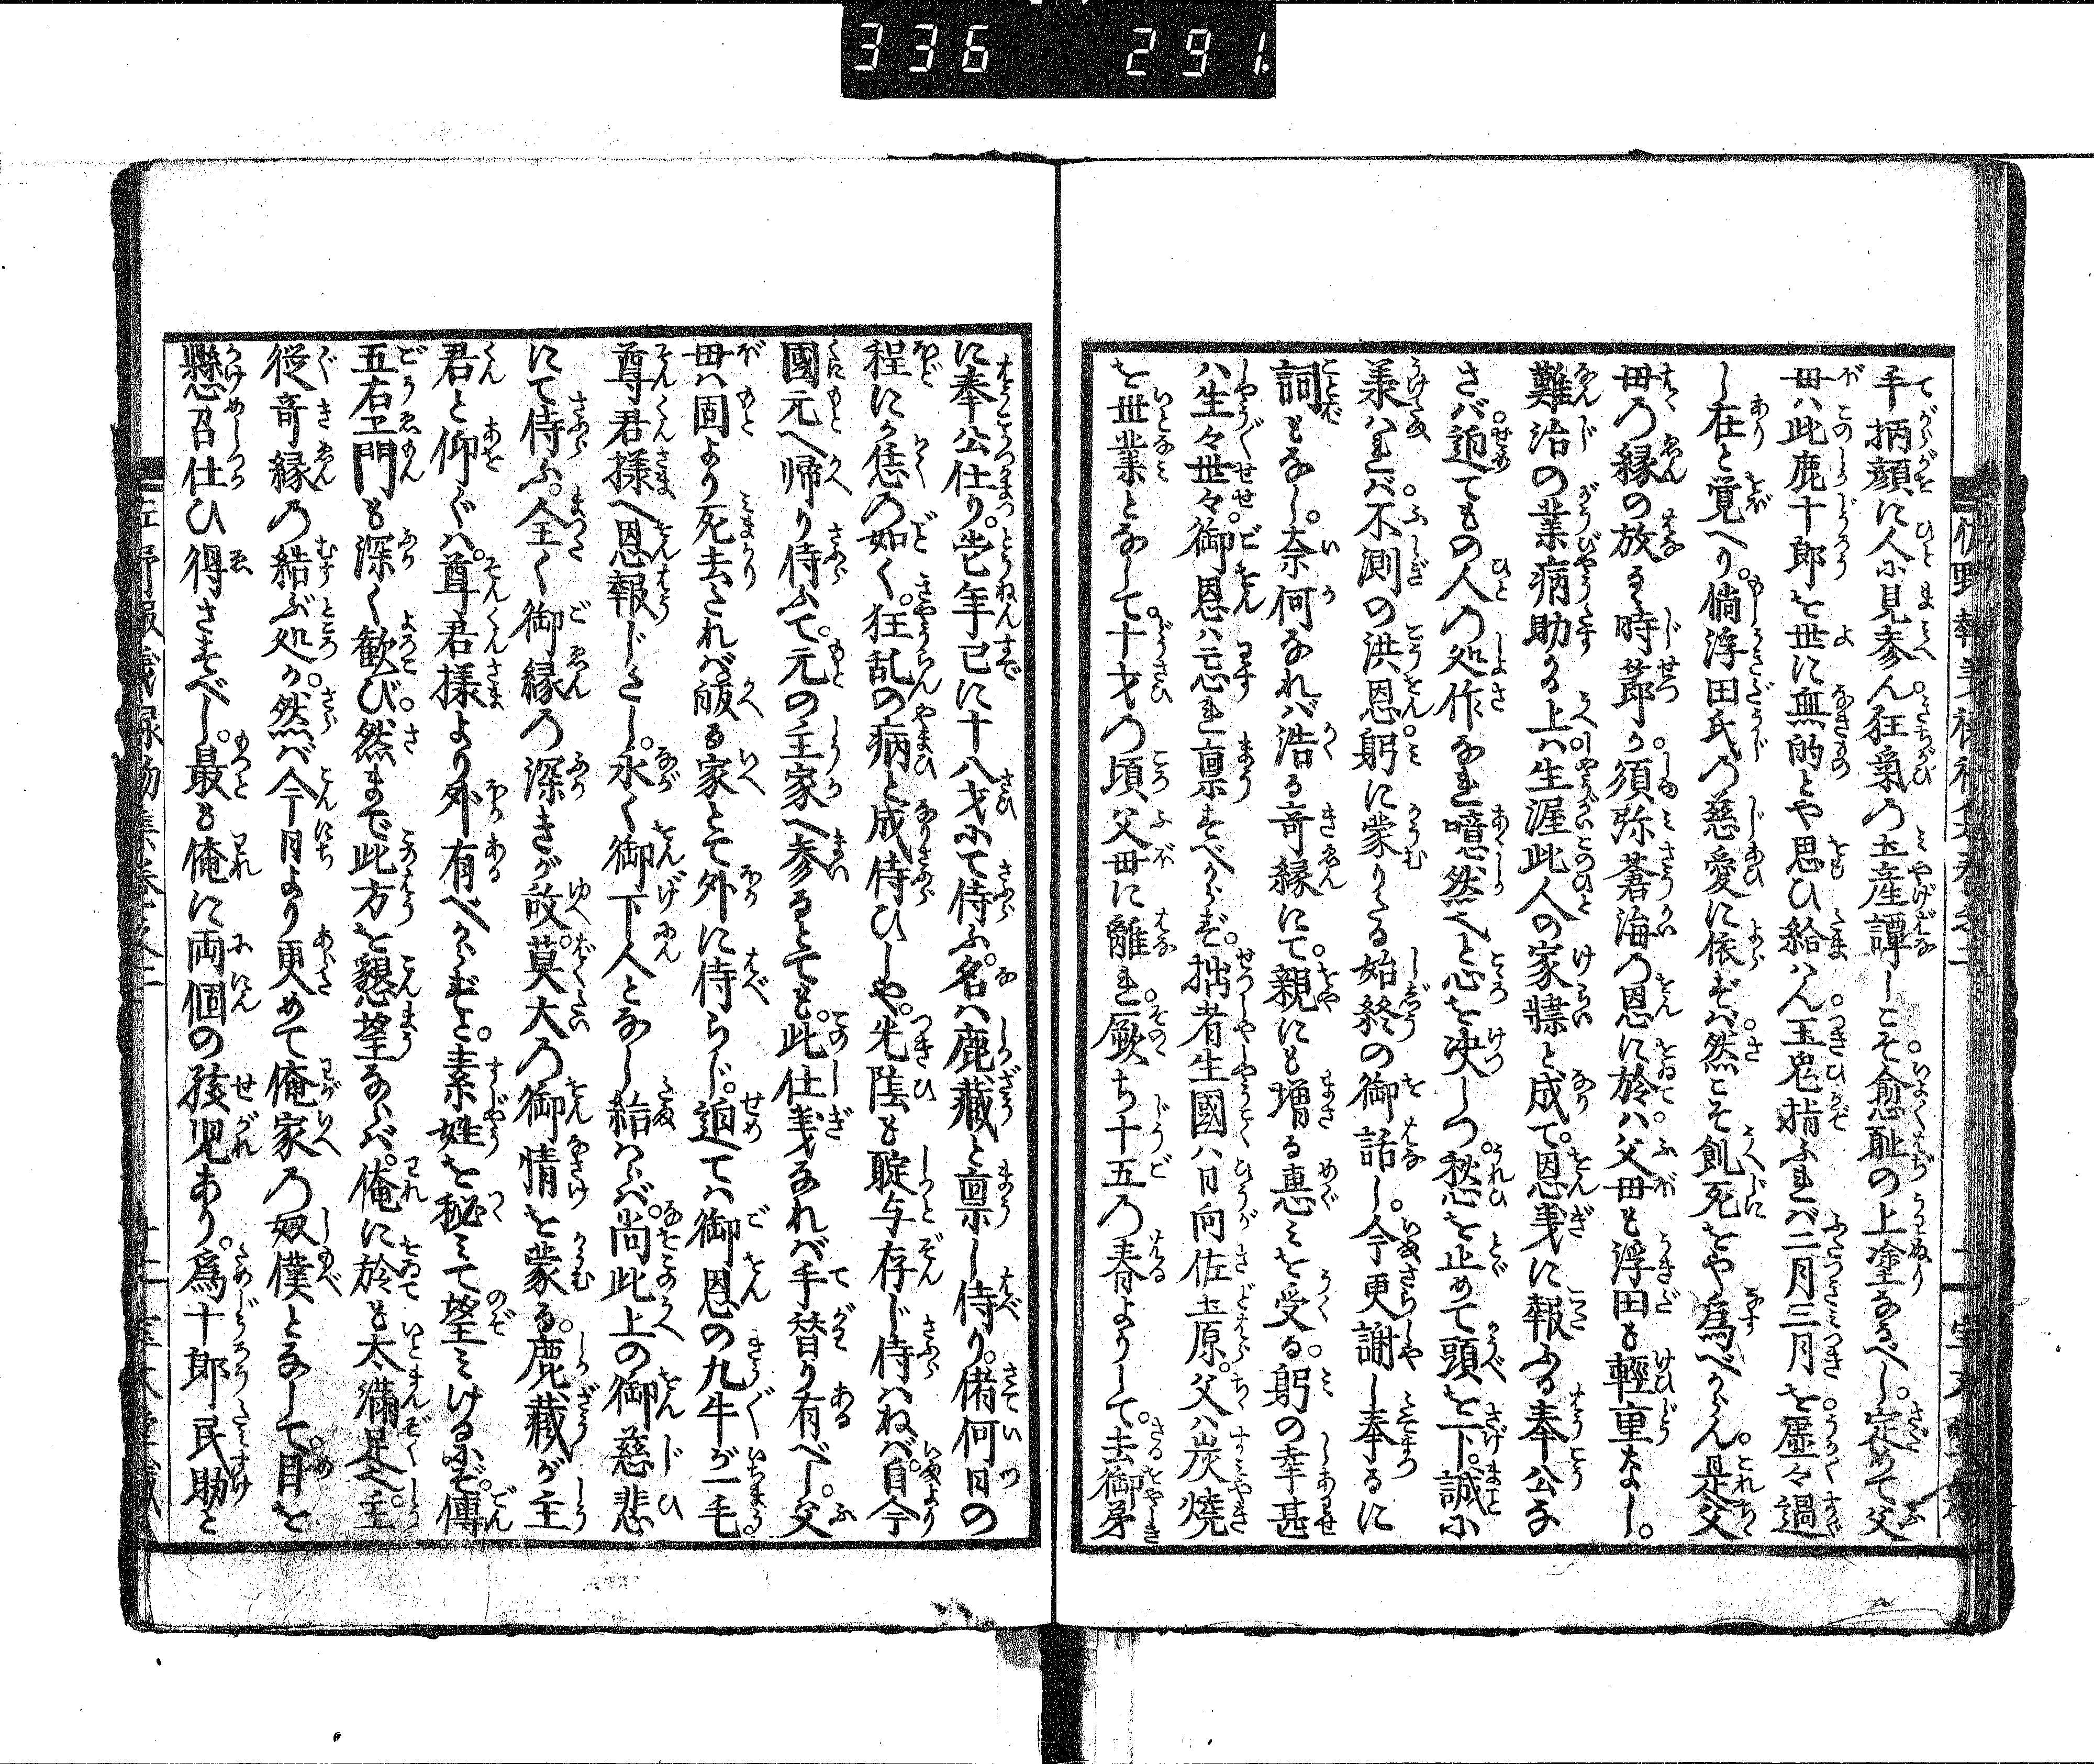 336 291.
手柄顔に人に見参ん狂気の土産譚しこそ愈恥の上塗なるべし。定めて父
母ハ此鹿十郎を世に無的とや思ひ給ハん玉兎指ふれバ二月三月を虚々過
し在と覚へり。倘浮田氏の慈愛に依ずバ然こそ飢死をや為べからん。是父
母の縁の放る時節か。須弥蒼海の恩に於ハ父母も浮田も軽重なし。
難治の業病助る上ハ生涯此人の家隷と成て。恩義に報ふる奉公な
さバ。迫てもの人の処作なれ噫然と心を决しつ。愁を止めて頭を下。誠に
承ハれバ不測の洪恩。躬に蒙りたる始終の御話し。今更謝し奉るに
詞もなし。奈何なれバ浩る奇縁にて。親にも増る恵ミを受る。躬の幸甚
ハ生々世々。御恩ハ忘れ稟すべからず。拙者生國ハ日向佐土原。父ハ炭焼
を世業となして。十才の頃父母に離れ。厥ち十五の春よりして。去御屋
に奉公仕り。当年已に十八才にて侍ふ。名ハ鹿蔵と稟し侍り。偖何日の
程にか恁の如く。狂乱の病と成侍ひしや。光陰も聢与存じ侍ハねバ。自今
國元へ帰り侍ふて。元の主家へ参るとても。此仕義なれバ手替り有べし。父
母ハ固より死去たれバ皈る家とて外に侍らじ。迫てハ御恩の九牛が一毛
尊君様へ恩報じたし。永く御下人となし給ハらバ。尚此上の御慈悲
にて侍ふ。全く御縁の深きが故。莫大の御情を蒙る。鹿蔵が主
君と仰ぐハ。尊君様より外有べからずと。素姓を秘ミて望ミけるにぞ。傳
五右卫門も深く歓び。然まで此方を懇望ならバ。俺に於も太満足也。主
従奇縁の結ぶ処か。然バ今日より更めて俺家の奴僕となして。目を
懸召仕ひ得さすべし。最も俺に両個の孩児あり。為十郎民助と